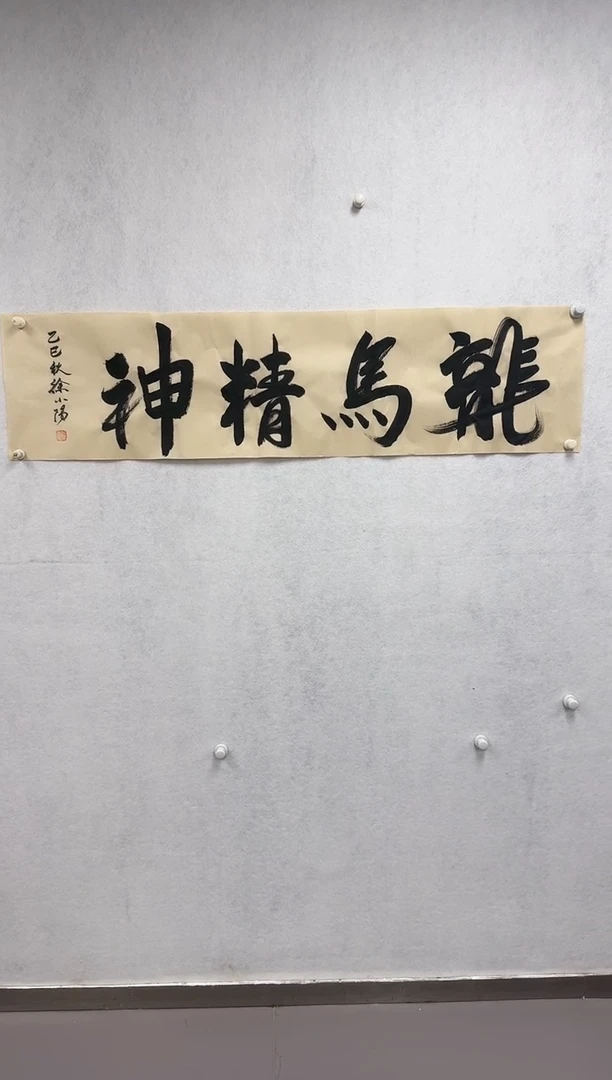 龍馬精神
乙巳秋徐小陽